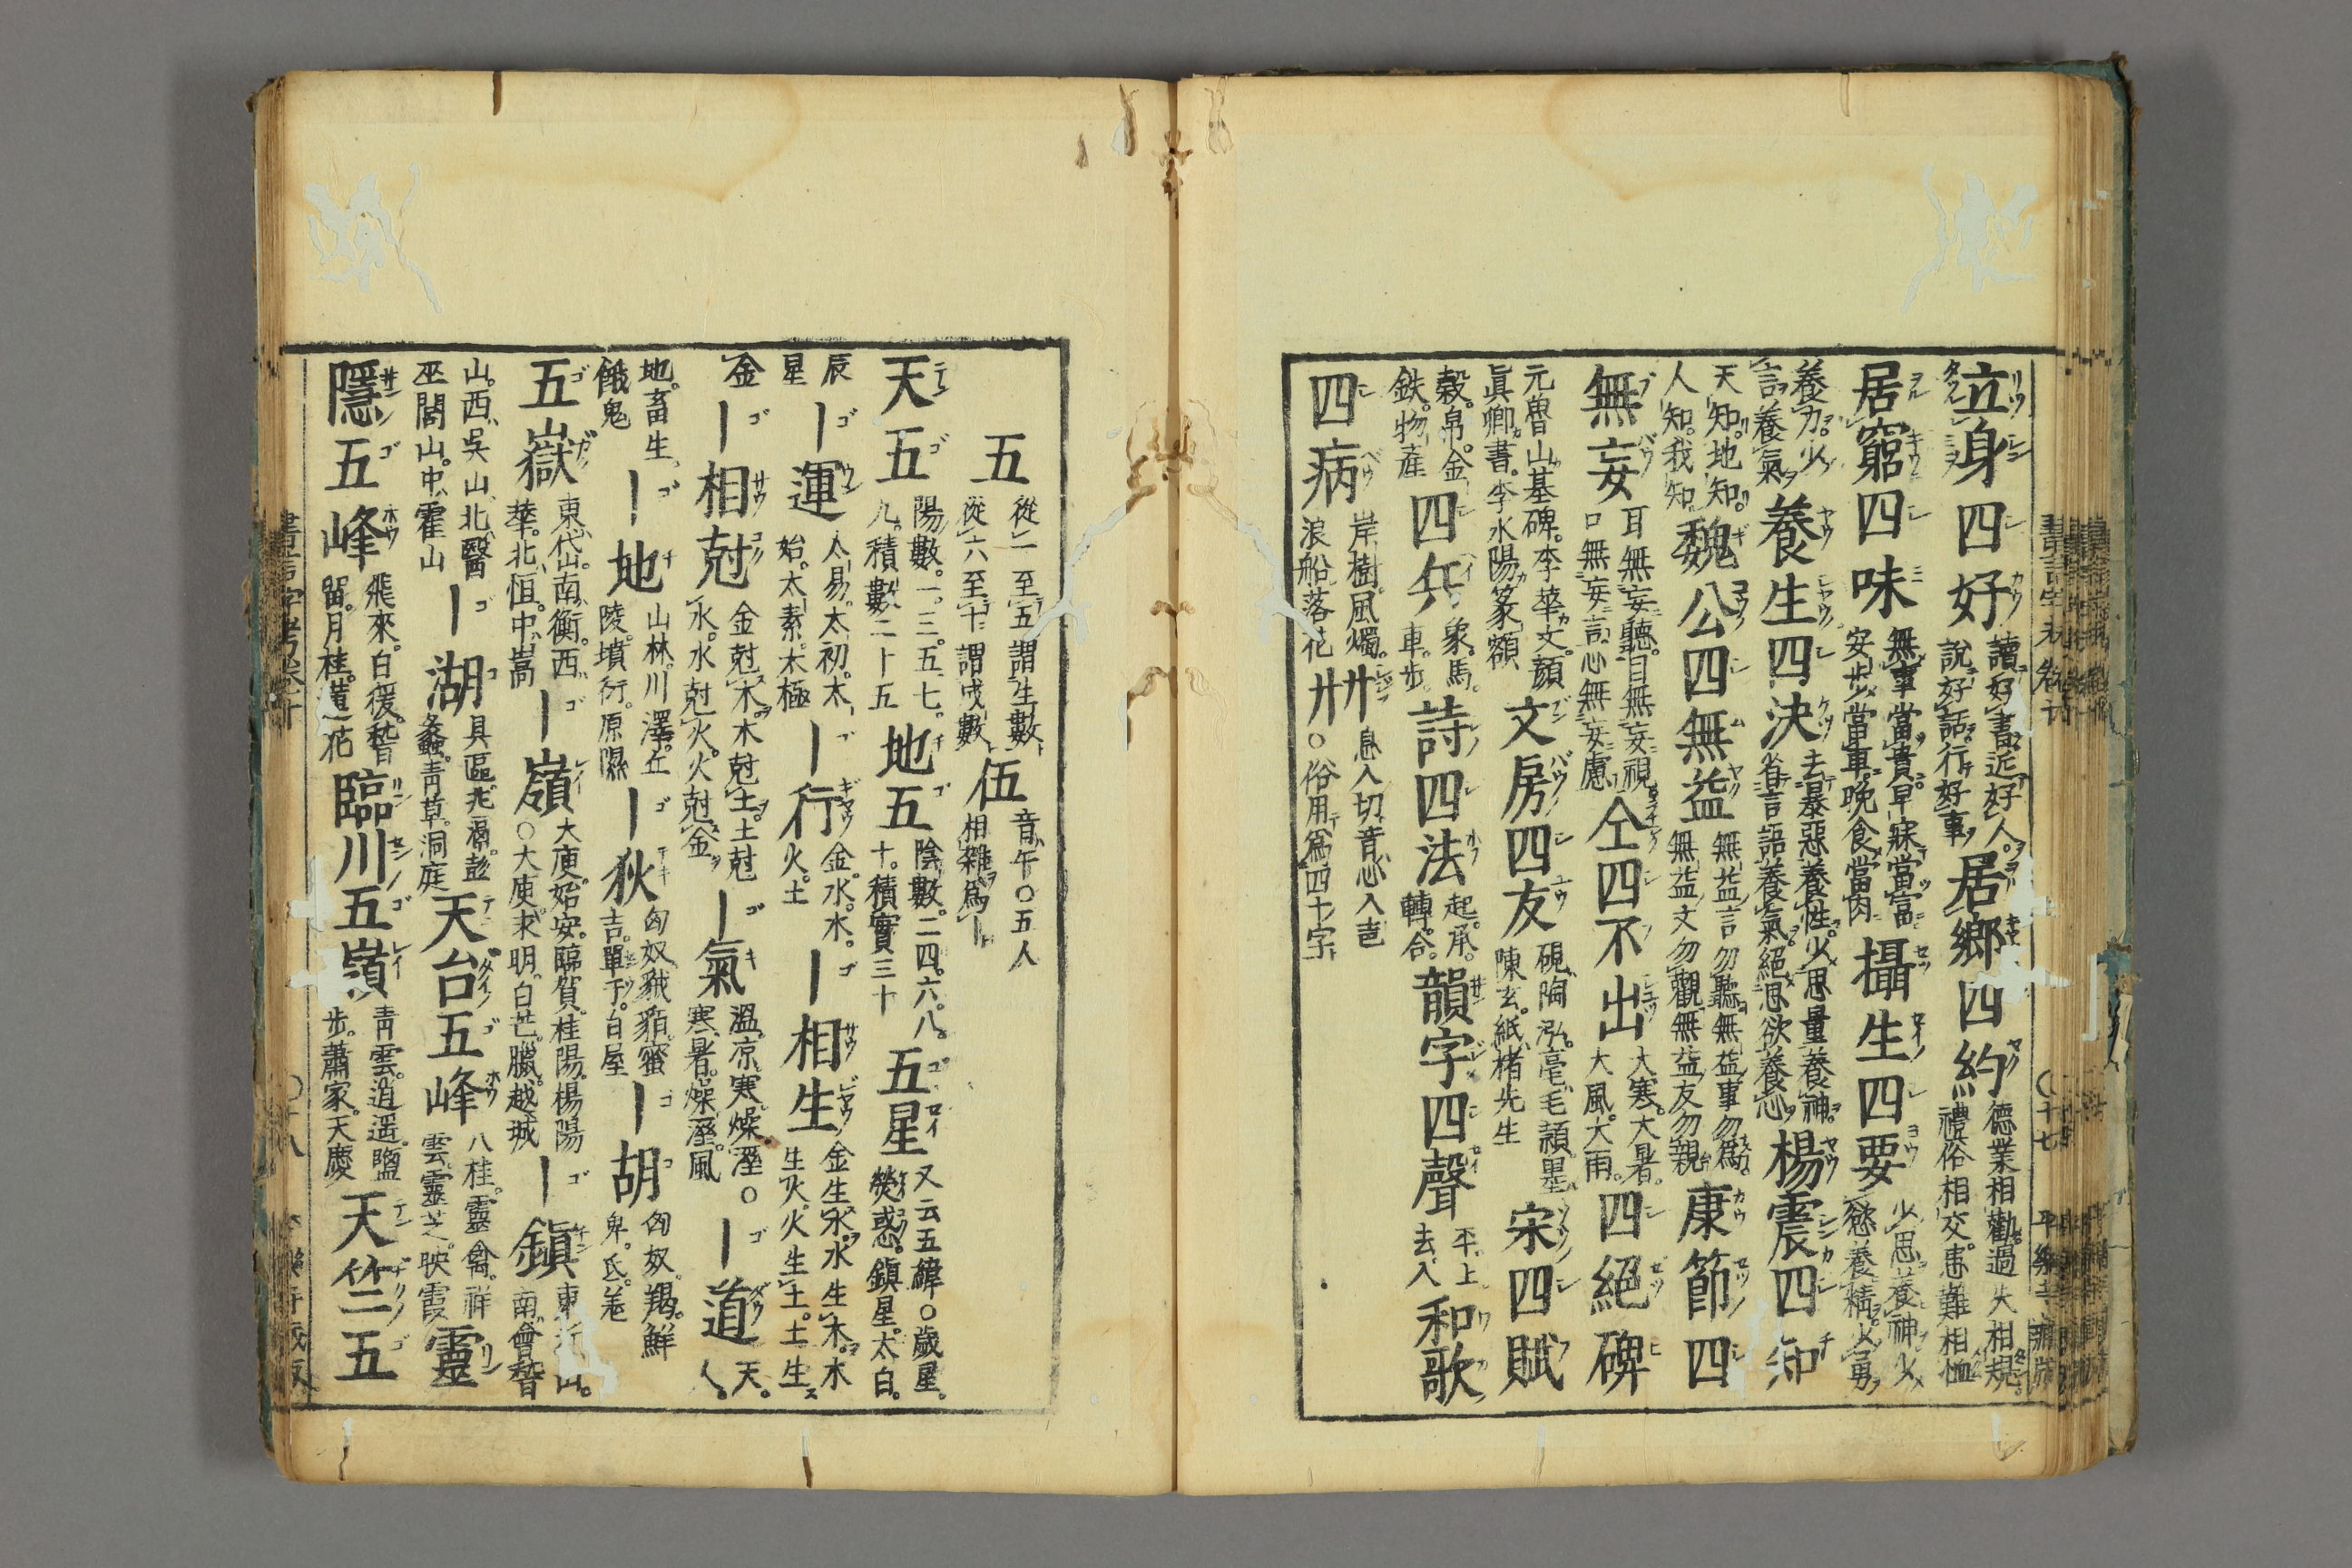 立身四好 讀好書近好人。
說好話行好事 居鄉四約 德業相勸。過失相規
禮俗相交。患難相恤
居窮四味 無事當貴早寐當富
安步當車。晚食當肉 攝生四要 少思養神少
慾養精。少勞
養力。少
言養氣 養生四決 去暴惡養性。少思量養神。
省言語養氣。絕思欲養心 楊震四知
天知。地知。
人知。我知 魏公四無益 無益言勿聽無益事勿爲
無益文勿觀無益友勿親 康節四
無妄 耳無妄聽。目無妄視
口無妄言心無妄慮 仝四不出 大寒。大暑。
大風。大雨。 四絕碑
元魯山墓碑。李華文。顏
眞卿書。李水陽篆額 文房四友 硯陶泓。毫毛穎墨
陳玄。紙楮先生 宋四賦
穀。帛。金
鉄。物產 四兵 象。馬。
車。步。 詩四法 起。承。
轉。合。 韻字四聲 平。上
去入 和歌
四病 岸樹。風燭。
浪船落花 卌 息入切。音心入声
○俗用爲四十字
五 從一至五謂生數
從六至十謂成數 伍 音午○五人
相雜爲｜
天五 陽數。一。三。五。七。
九。積數二十五 地五 陰數。二四。六。八。
十。積實三十 五星 又云五緯○歲星。
熒惑。鎭星。太白。
辰
星 ｜運 太易。太初。太
始。太素。太極 ｜行 金。水。木。
火。土 ｜相生 金生水水生木。木
生火。火生土。土生
金 ｜相尅 金尅木木尅土。土尅
水。水尅火。火尅金 ｜氣 溫。凉。寒。燥。溼○
寒。暑。燥。溼。風 ｜道 天。
人。
地。畜生。
餓鬼 ｜地 山林。川澤。丘
陵。墳衍。原隰 ｜狄 匈奴。䝠貊。蜜
吉。單于。白屋 ｜胡 匈奴。羯。鮮
卑。氐。羌
五嶽 東岱。南衡。西
華。北恒。中嵩 ｜嶺 大庾。始安。臨賀。桂陽。楊陽
○大庾。求明。白芒。臘。越城 ｜鎭 東沂山。
南會稽
山。西吳山。北醫
巫閭山。中霍山 ｜湖 具區。洮滆。彭
蠡。靑草。洞庭 天台五峰 八桂。靈禽。祥
雲。靈芝。映霞 靈
隱五峰 飛來。白猨。稽
留。月桂。蓮花 臨川五嶺 靑雲。逍遥。鹽
步。蕭家。天慶 天竺五